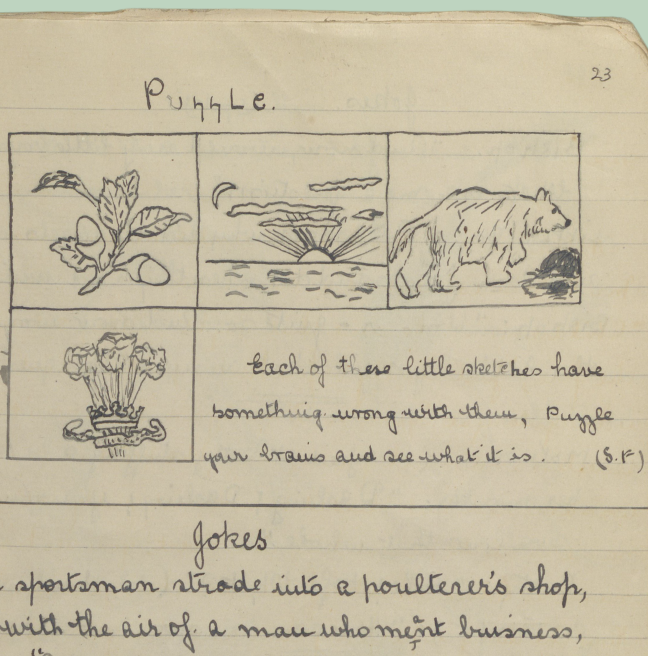 23
Puzzle.
Each of these little sketches have
something wrong with them, Puzzle
your brains and see what it is. (S.F)
Jokes
sportsman strode into a poulterer's shop,
with the air of a man who ment a business,